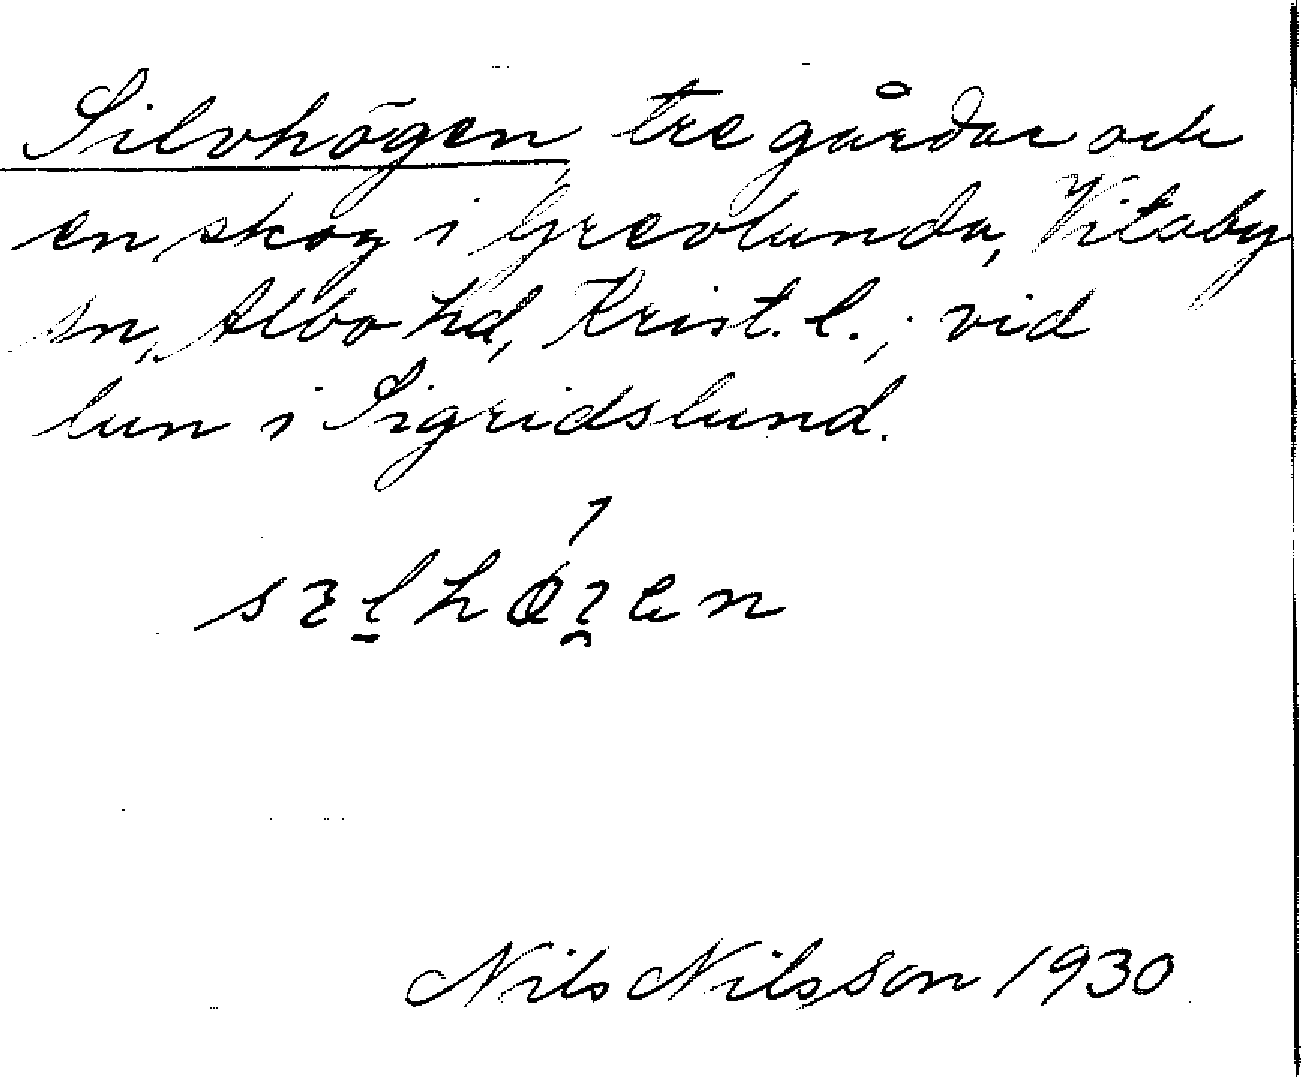 Silvhögen tre gårdar och
en skog i Grevlunda, Vitaby
sn, Albo hd, Krist. l.; vid
lun i Sigridslund.
Nils Nilsson 1930